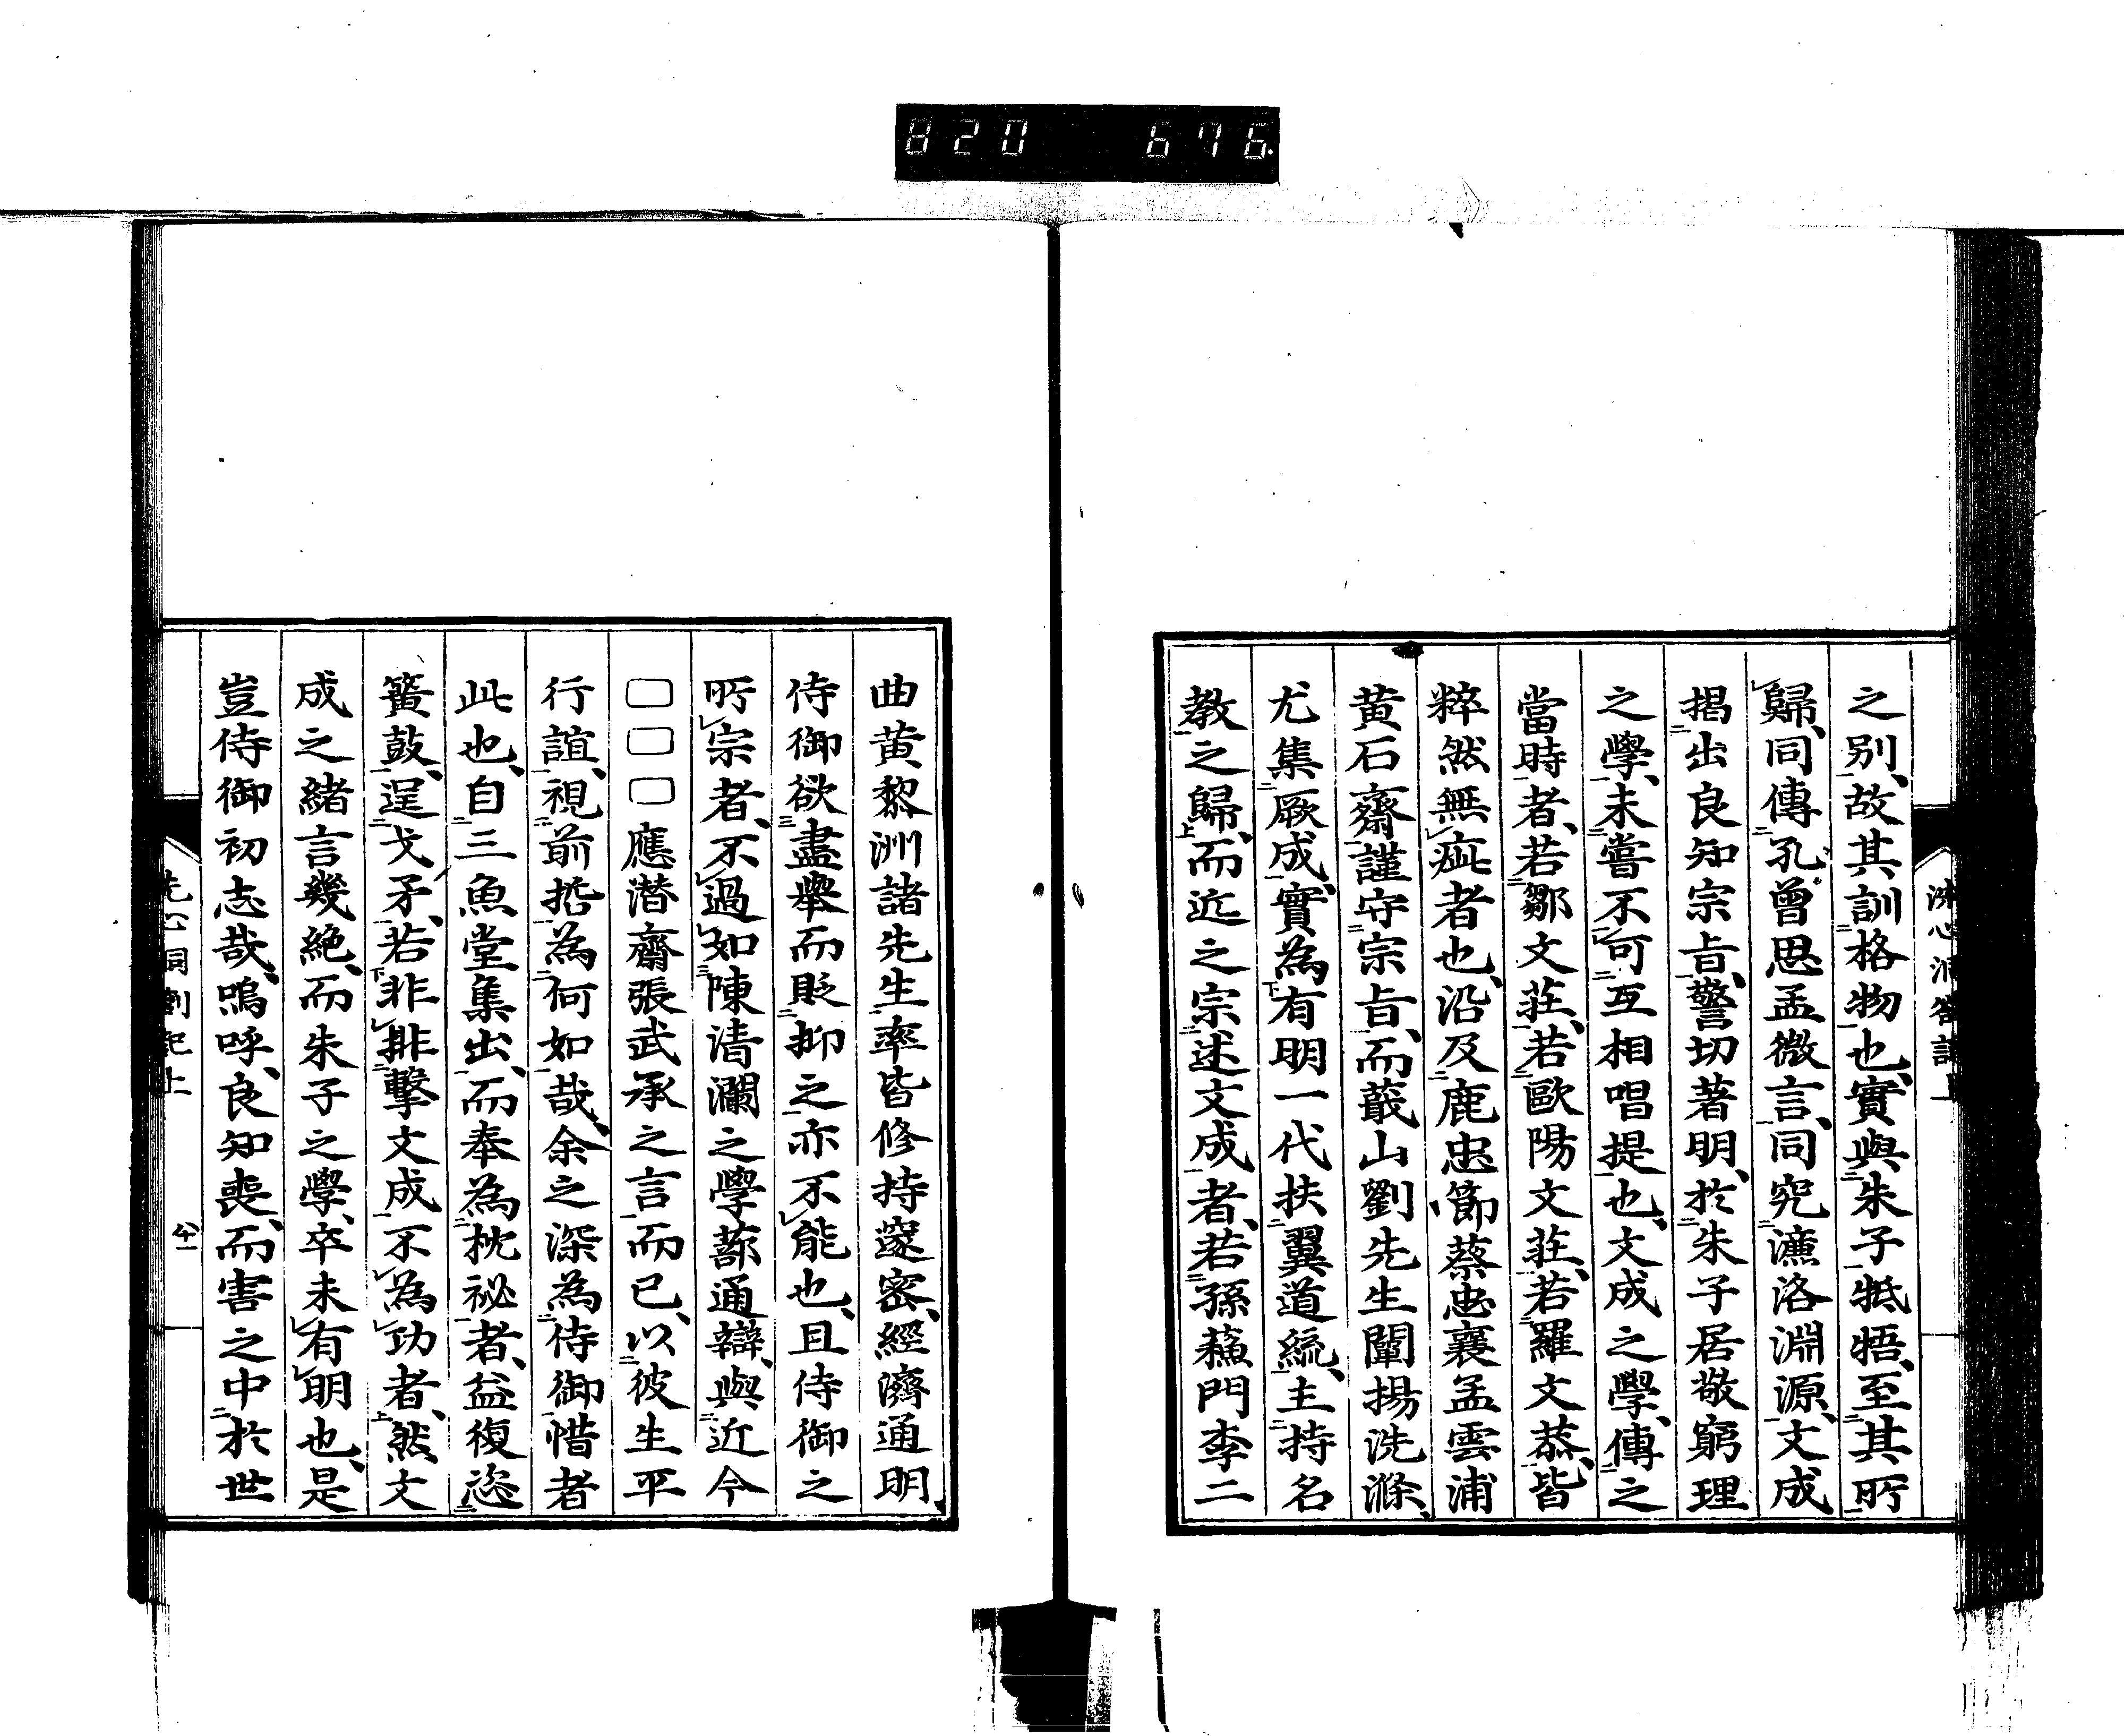 820 676
洗心洞劄記上
之別、故其訓格物也、實與朱子牴牾、至其所
歸、同傳孔曾思孟微言、同究濂洛淵源、文成
揭出良知宗旨、警切著明、於朱子居敬窮理
之學、未嘗不可互相唱提也、文成之學、傳之
當時者、若鄒文莊、若歐陽文莊、若羅文恭、皆
粹然無疵者也、沿及鹿忠節蔡忠襄孟雲浦
黄石齋謹守宗旨、而蕺山劉先生闡揚洗滌、
尤集厥成、實為有明一代扶翼道統、主持名
教之歸、而近之宗述文成者、若孫蘓門李二
曲黄黎洲諸先生、率皆修持邃密、經濟通明、
侍御欲盡舉而貶抑之、亦不能也、且侍御之
所宗者、不過如陳清瀾之學蔀通辯、與近今
□□□應潜齋張武承之言而已、以彼生平
行誼、視前哲為何如哉、余之深為侍御惜者
此也、自三魚堂集出、而奉為枕祕者、益復恣
簧鼓、逞戈矛、若非排擊文成、不為功者、然文
成之緒言幾絶、而朱子之學、卒未有明也、是
豈侍御初志哉、嗚呼、良知喪、而害之中於世
洗心洞劄記上